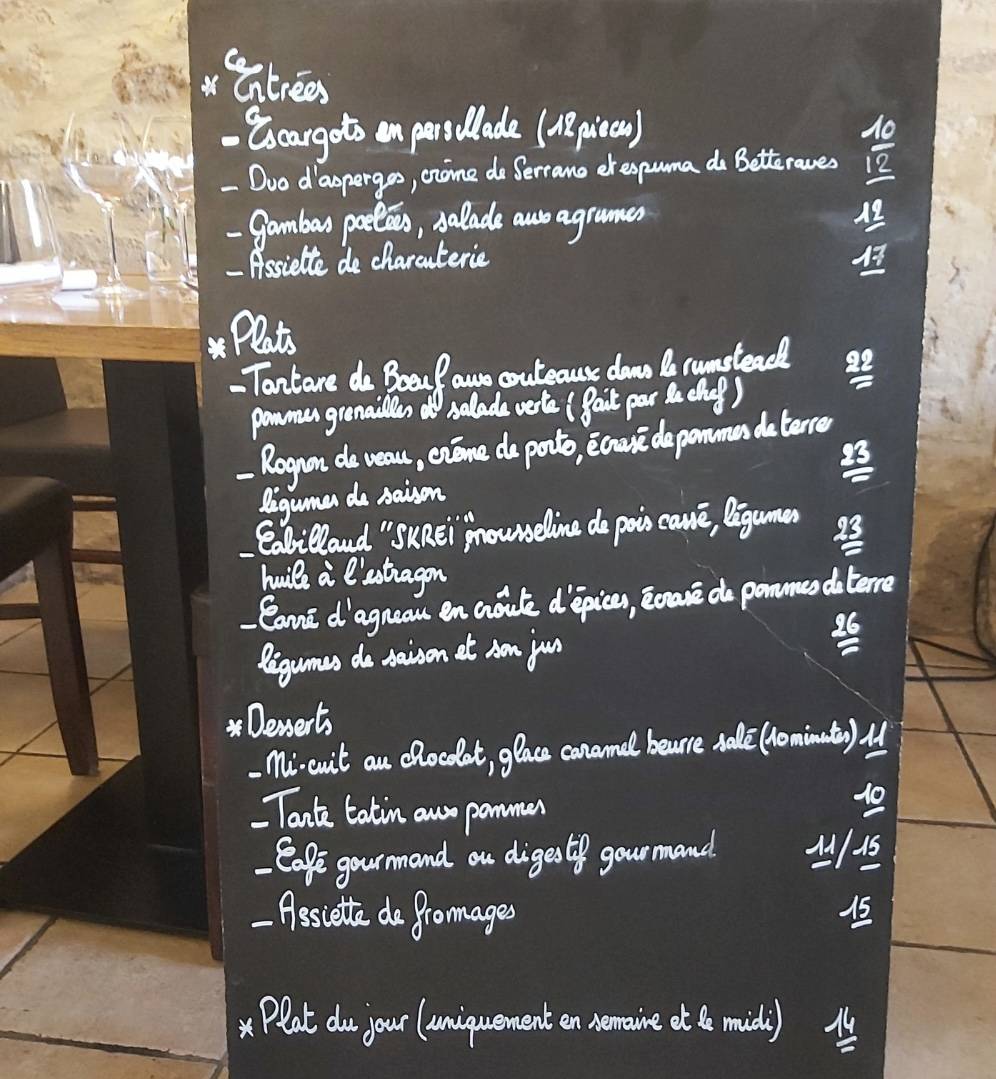 * Entrées
- Escargots en persillade (12 pieces) 10
- Duo d'asperges, crème de Serrano et espuma de Betteraves 12
- Gambas poêlées, salade aux agrumes 12
- Assiette de charcuterie 17
* Plats
- Tartare de Boeuf aux couteaux dans le rumsteack 22
pommes grenailles et salade verte (fait par le chef)
- Rognon de veau, crème de porto, écrasé de pommes de terre 23
légumes de saison
- Cabillaud "SKREÏ", mousseline de pois cassé, légumes 23
huile à l'estragon
- Carré d'agneau en croûte d'épices, écrasé de pommes de terre
légumes de saison et son jus 26
* Desserts
- Mi-cuit au chocolat, glace caramel beurre salé (10 minutes) 11
- Tarte tatin aux pommes 10
- Café gourmand ou digestif gourmand 11/15
- Assiette de fromages 15
* Plat du jour (uniquement en semaine et le midi) 14